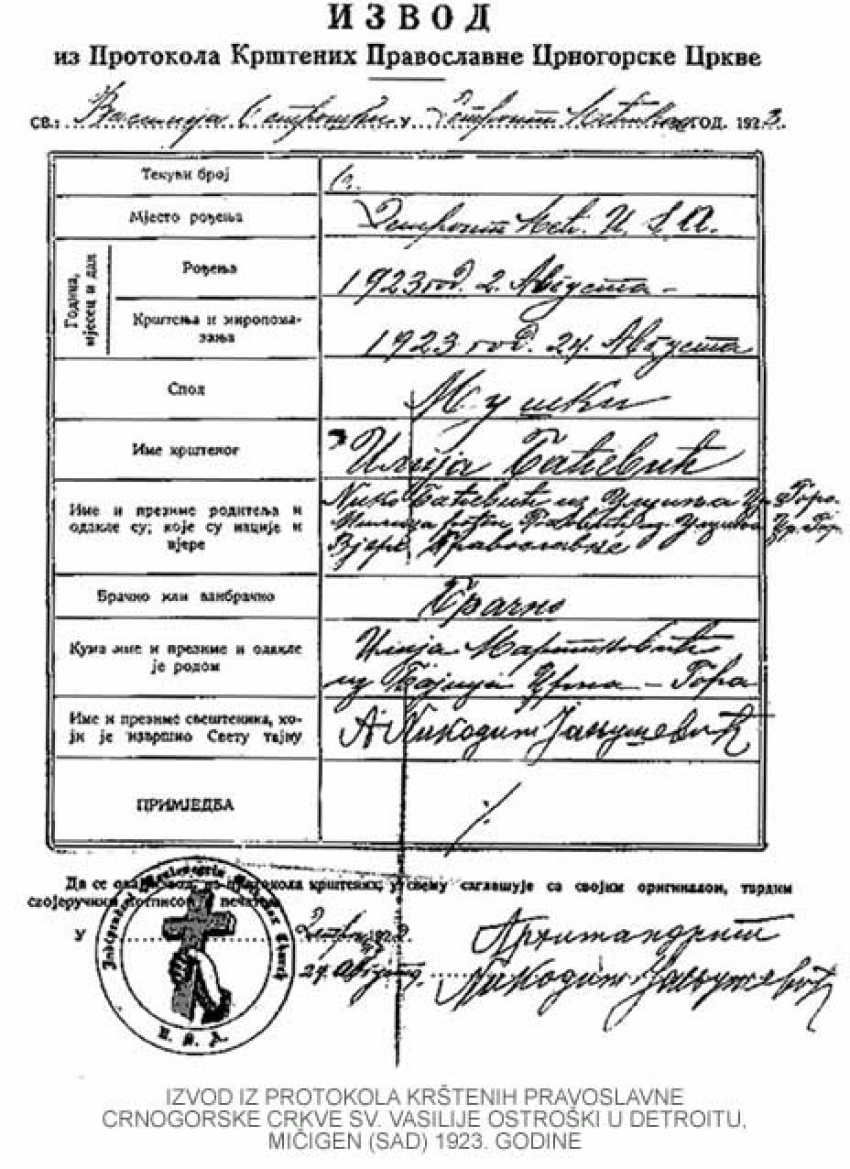 ИЗВОД
из Протокола Крштених Православне Црногорске Цркве
св.: Василија Острошки у Детроит Мећиген год. 1923.
Текући број
Мјесто рођења
Детроит Мећ. U. S. A.
Година, мјесец и дан
Рођења
1923 год. 2. Августа -
Крштења и миропома-
зања
1923 год. 24. Августа
Спол
Мушки
Име крштеног
Илија Баћевић
Име и презиме родитеља и
одакле су; које су нације и
вјере
Нико Баћевић из Цр. Гора.
Милица Цр. Гор
Вјере Православне
Брачно или ванбрачно
Брачно
Кума име и презиме и одакле
је родом
Илија Мартиновић
из Бајица Црна - Гора
Име и презиме свештеника, ко-
ји је извршио Свету тајну
А. Никодим Јањушевић
ПРИМЈЕДБА
Да се овај извод, из протокола крштених, у свему саглашује са својим оригиналом, тврдим
својеручним потписом и печатом.
У Детроит 1923
24 Августа.
Архимандрит
Никодим Јањушевић
Independent Montenegrin Orthodox Church
U. S. A.
IZVOD IZ PROTOKOLA KRŠTENIH PRAVOSLAVNE
CRNOGORSKE CRKVE SV. VASILIJE OSTROŠKI U DETROITU,
MIČIGEN (SAD) 1923. GODINE